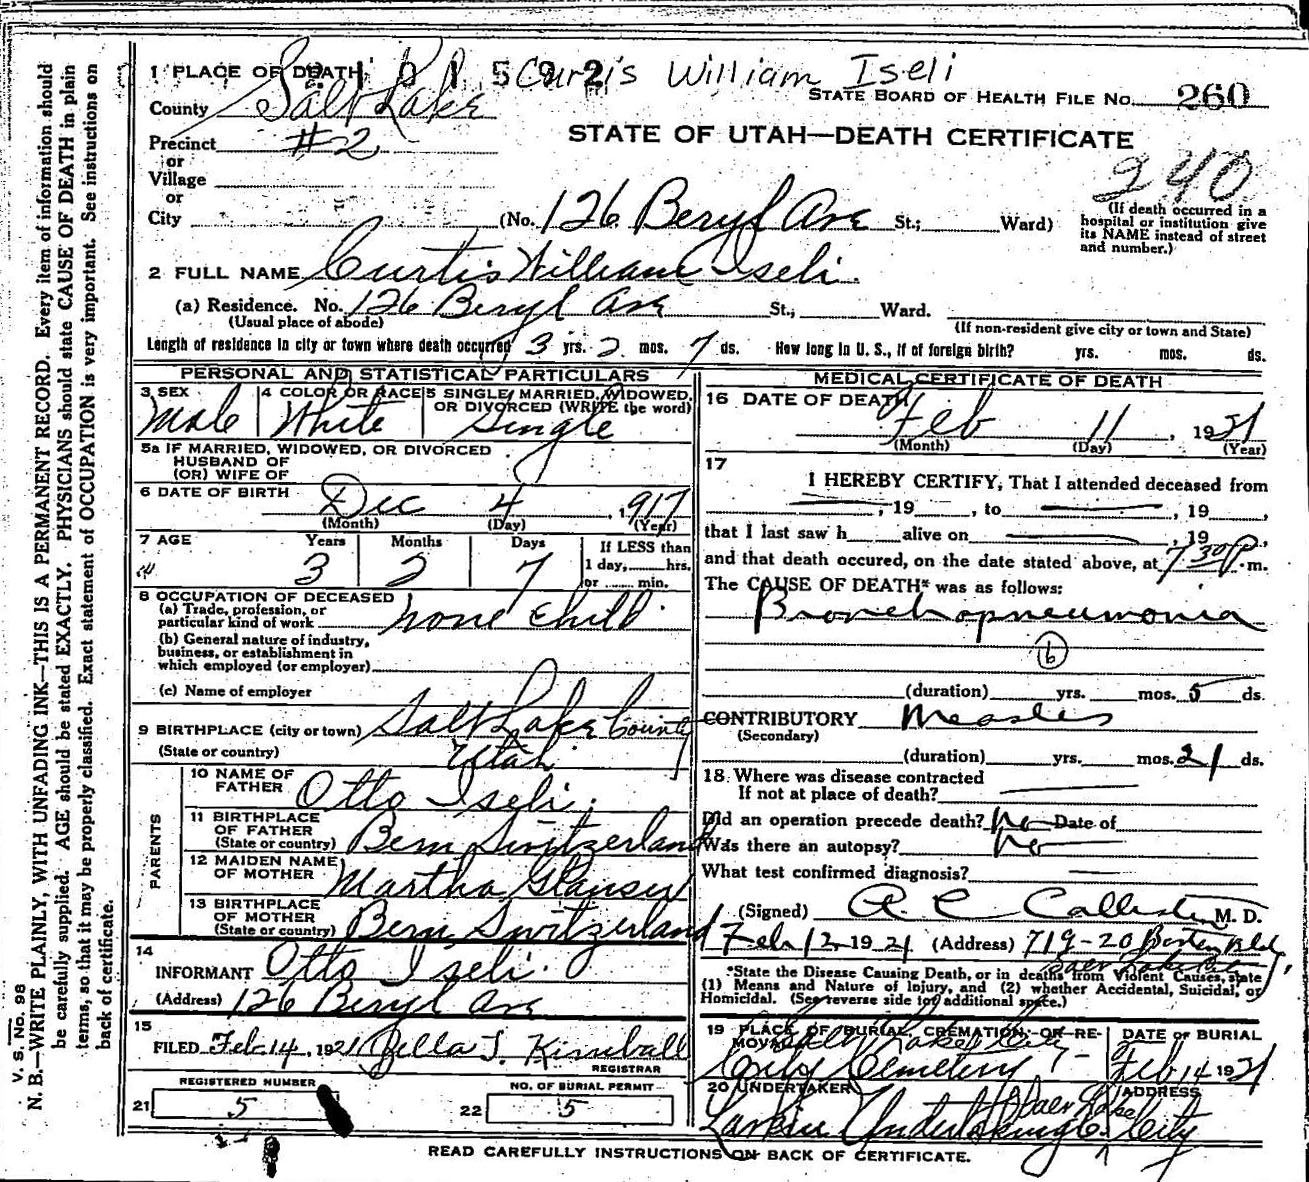 V. S. No. 98
N. B.—WRITE PLAINLY, WITH UNFADING INK—THIS IS A PERMANENT RECORD. Every item of information should
be carefully supplied. AGE should be stated EXACTLY. PHYSICIANS should state CAUSE OF DEATH in plain
terms, so that it may be properly classified. Exact statement of OCCUPATION is very important. See instructions on
back of certificate.
Curtis William Iseli
1 PLACE OF DEATH
STATE BOARD OF HEALTH FILE No. 260
County Salt Lake
STATE OF UTAH—DEATH CERTIFICATE
Precinct #2
or
Village
or
City
240
(No. 126 Beryl Ave St.; Ward)
(If death occurred in a
hospital or institution give
its NAME instead of street
and number.)
2 FULL NAME Curtis William Iseli.
(a) Residence. No. 126 Beryl Ave St., Ward.
(Usual place of abode)
(If non-resident give city or town and State)
Length of residence in city or town where death occurred 3 yrs. 2 mos. 7 ds. How long in U. S., if of foreign birth? yrs. mos. ds.
PERSONAL AND STATISTICAL PARTICULARS
3 SEX
Male
4 COLOR OR RACE
White
5 SINGLE, MARRIED, WIDOWED,
OR DIVORCED (WRITE the word)
Single
5a IF MARRIED, WIDOWED, OR DIVORCED
HUSBAND OF
(OR) WIFE OF
6 DATE OF BIRTH Dec 4, 1917
(Month) (Day) (Year)
7 AGE Years Months Days If LESS than
3 2 7 1 day, hrs.
or min.
8 OCCUPATION OF DECEASED
(a) Trade, profession, or
particular kind of work none child
(b) General nature of industry,
business, or establishment in
which employed (or employer)
(c) Name of employer
9 BIRTHPLACE (city or town) Salt Lake County
(State or country) Utah
PARENTS
10 NAME OF
FATHER Otto Iseli.
11 BIRTHPLACE
OF FATHER
(State or country) Bern Switzerland
12 MAIDEN NAME
OF MOTHER Martha Glauser
13 BIRTHPLACE
OF MOTHER
(State or country) Bern Switzerland
14
INFORMANT Otto Iseli.
(Address) 126 Beryl Ave
15
FILED Feb. 14, 1921 Zella T. Kimball
REGISTRAR
REGISTERED NUMBER
21 5
NO. OF BURIAL PERMIT
22 5
MEDICAL CERTIFICATE OF DEATH
16 DATE OF DEATH
Feb 11, 1921
(Month) (Day) (Year)
17
I HEREBY CERTIFY, That I attended deceased from
, 19 , to , 19 ,
that I last saw h alive on , 19 ,
and that death occured, on the date stated above, at 7 30 P. m.
The CAUSE OF DEATH* was as follows:
Bronchopneumonia
b
(duration) yrs. mos. 5 ds.
CONTRIBUTORY Measles
(Secondary)
(duration) yrs. mos. 21 ds.
18. Where was disease contracted
If not at place of death?
Did an operation precede death? no Date of
Was there an autopsy? no
What test confirmed diagnosis?
(Signed) A. C. Callister, M. D.
Feb 12 1921 (Address) 719-20 Boston Bld
Salt Lake City
*State the Disease Causing Death, or in deaths from Violent Causes, state
(1) Means and Nature of Injury, and (2) whether Accidental, Suicidal, or
Homicidal. (See reverse side for additional space.)
19 PLACE OF BURIAL, CREMATION, OR RE-
MOVAL
Salt Lake City
City Cemetery
DATE OF BURIAL
Feb 14 1921
20 UNDERTAKER
Larkin Undertaking Co.
ADDRESS
Salt Lake
City
READ CAREFULLY INSTRUCTIONS ON BACK OF CERTIFICATE.